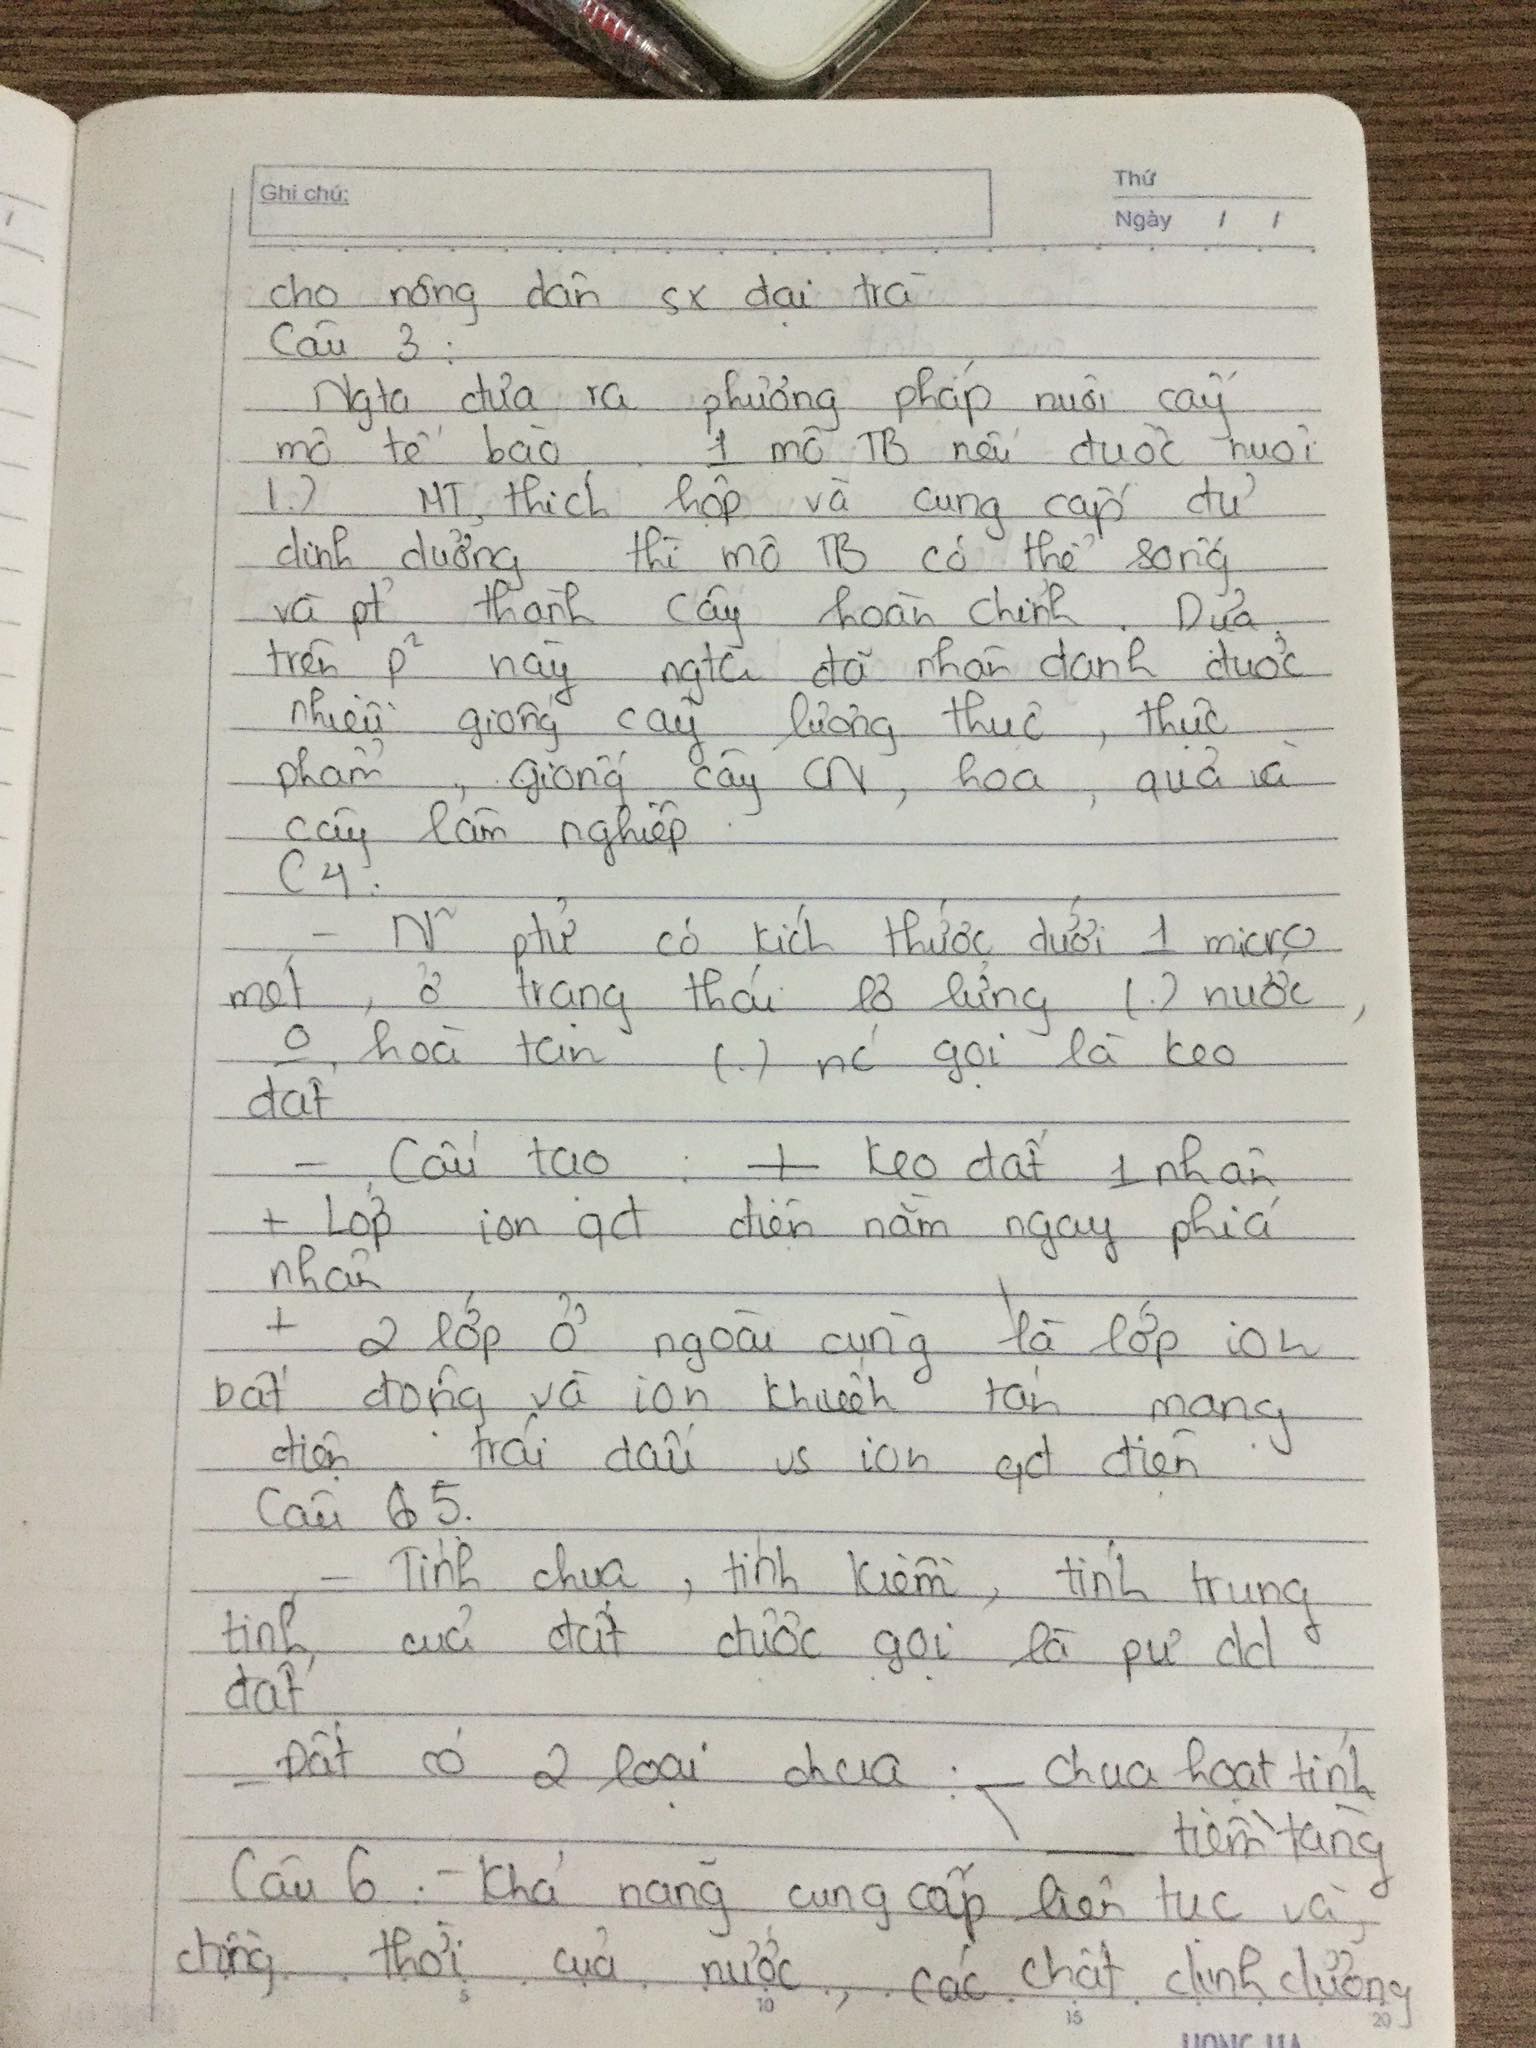 Ghi chú:
Thứ
Ngày / /
cho nông dân sx đại trà
Câu 3:
Ngta đưa ra phương pháp nuôi cấy
mô tế bào. 1 mô TB nếu được nuôi
(.) MT thích hợp và cung cấp đủ
dinh dưỡng thì mô TB có thể sống
và pt thành cây hoàn chỉnh. Dựa
trên p² này ngta đã nhân danh được
nhiều giống cây lương thực, thực
phẩm, giống cây CN, hoa, quả và
cây lâm nghiệp.
C4:
- N~ ptử có kích thước dưới 1 micro
mét, ở trạng thái lơ lửng (.) nước,
o hoà tan (.) nc gọi là keo
đất
- Cấu tạo: + keo đất 1 nhân
+ Lớp ion qđ điện nằm ngay phía
nhân
+ 2 lớp ở ngoài cùng là lớp ion
bất động và ion khuếch tán mang
điện trái dấu vs ion qđ điện.
Câu 5.
- Tính chua, tính kiềm, tính trung
tính của đất được gọi là pư dd
đất
- Đất có 2 loại chua: - chua hoạt tính
tiềm tàng
Câu 6: - Khả năng cung cấp liên tục và
thời của nước, các chất dinh dưỡng
5 10 15 20
HONG HA